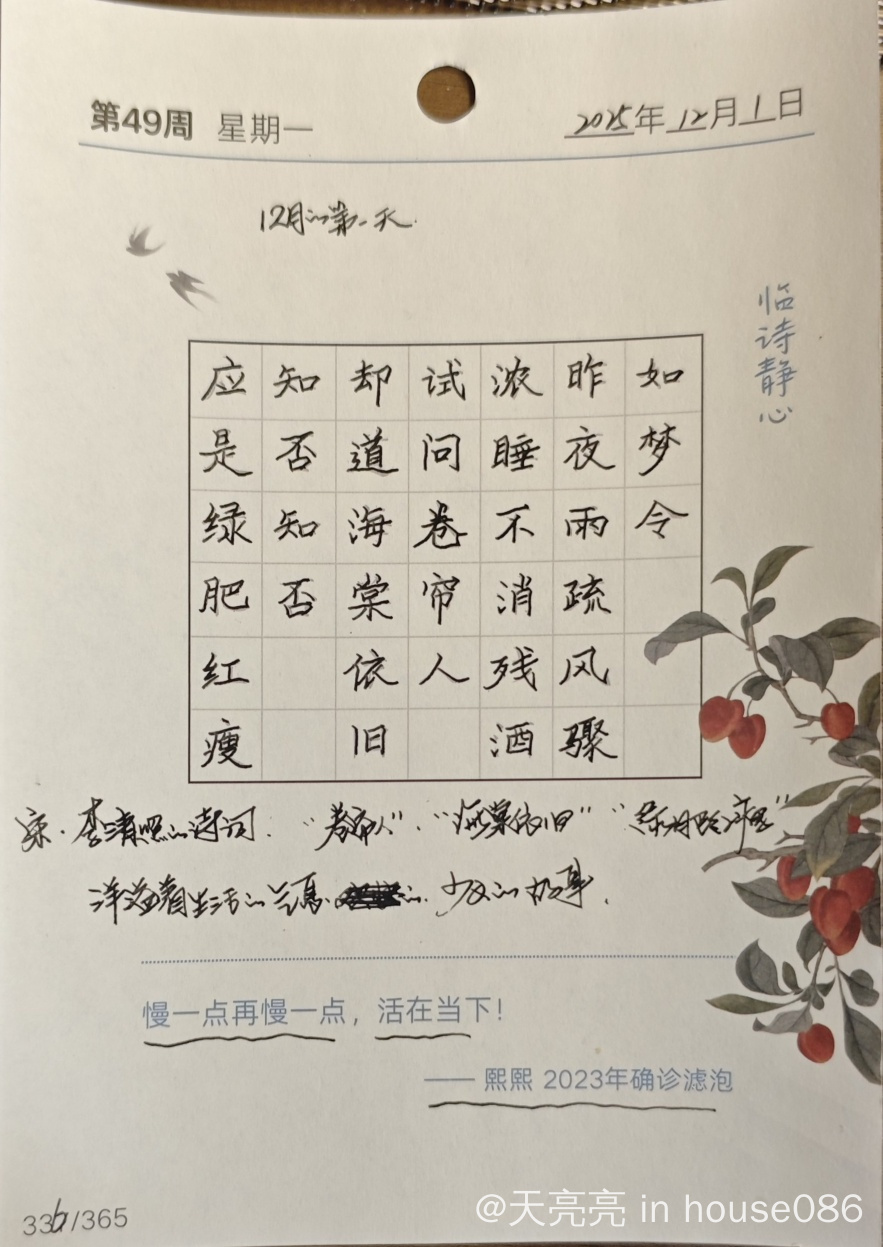 第49周 星期一
2025年12月1日
12月的第一天.
临诗静心
如梦令
昨夜雨疏风骤
浓睡不消残酒
试问卷帘人
却道海棠依旧
知否知否
应是绿肥红瘦
宋·李清照的诗词. "卷帘人"."海棠依旧"
洋溢着生活的 少女的故事.
慢一点再慢一点，活在当下！
—— 熙熙 2023年确诊滤泡
336/365
@天亮亮 in house086